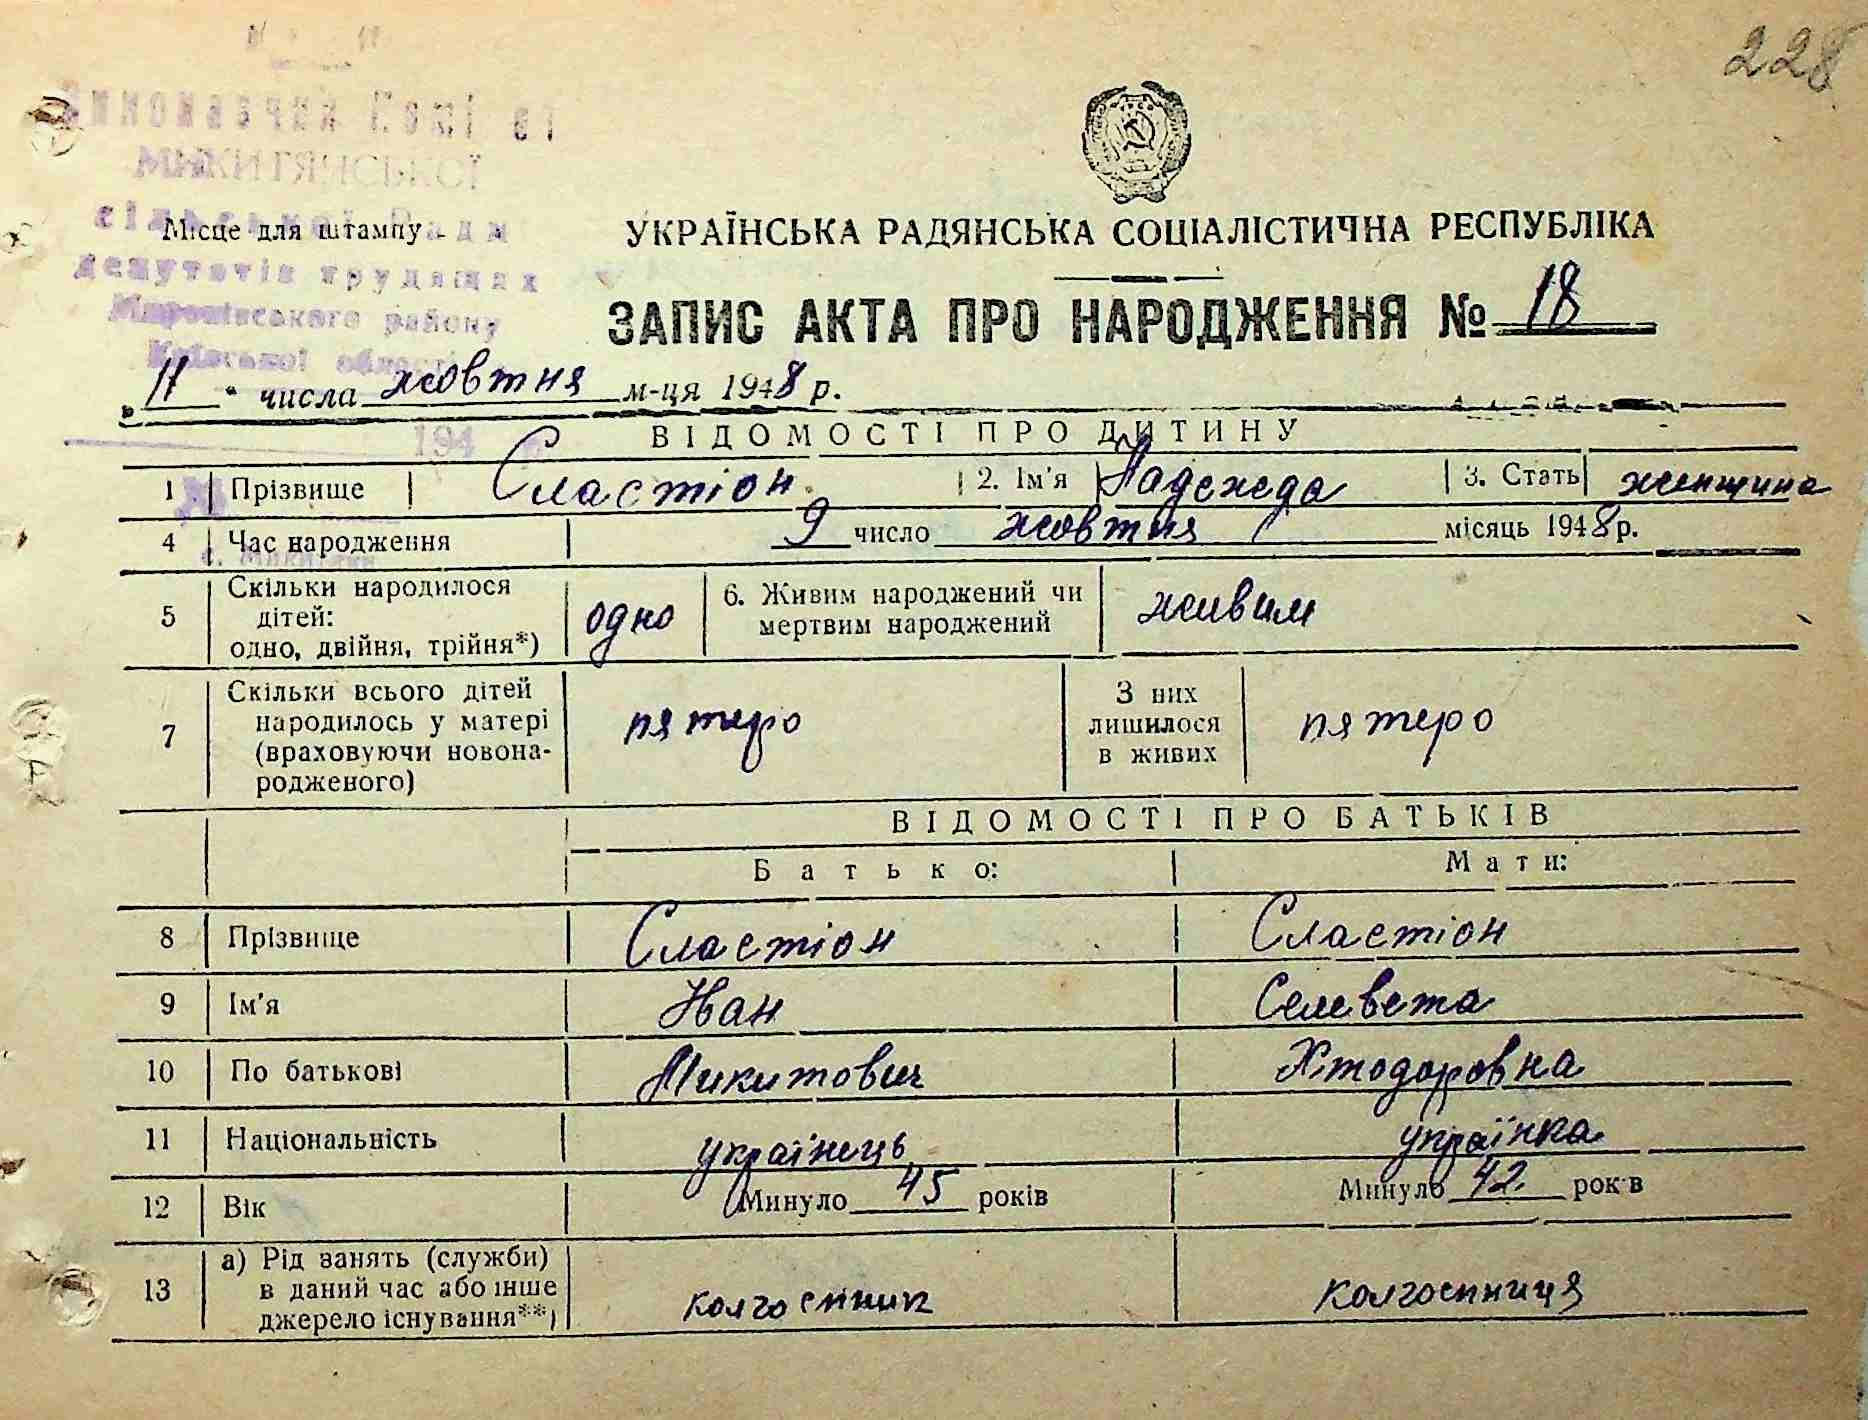 228
МИКИТЯНСЬКОЇ
сільської Ради
депутатів трудящих
Миронівського району
Київської області
Місце для штампу
УКРАЇНСЬКА РАДЯНСЬКА СОЦІАЛІСТИЧНА РЕСПУБЛІКА
ЗАПИС АКТА ПРО НАРОДЖЕННЯ № 18
„11“ числа жовтня м-ця 1948 р.
194
ВІДОМОСТІ ПРО ДИТИНУ
1 Прізвище Сластіон 2. Ім'я Надежда 3. Стать женщина
4 Час народження 9 число жовтня місяць 1948 р.
с. Микитяни
5 Скільки народилося дітей: одно, двійня, трійня*) одно 6. Живим народжений чи мертвим народжений живим
7 Скільки всього дітей народилось у матері (враховуючи новонародженого) пятеро З них лишилося в живих пятеро
ВІДОМОСТІ ПРО БАТЬКІВ
Батько: Мати:
8 Прізвище Сластіон Сластіон
9 Ім'я Иван Селевета
10 По батькові Микитович Хтодоровна
11 Національність українець українка
12 Вік Минуло 45 років Минуло 42 років
13 а) Рід занять (служби) в даний час або інше джерело існування**) колгоспник колгоспниця